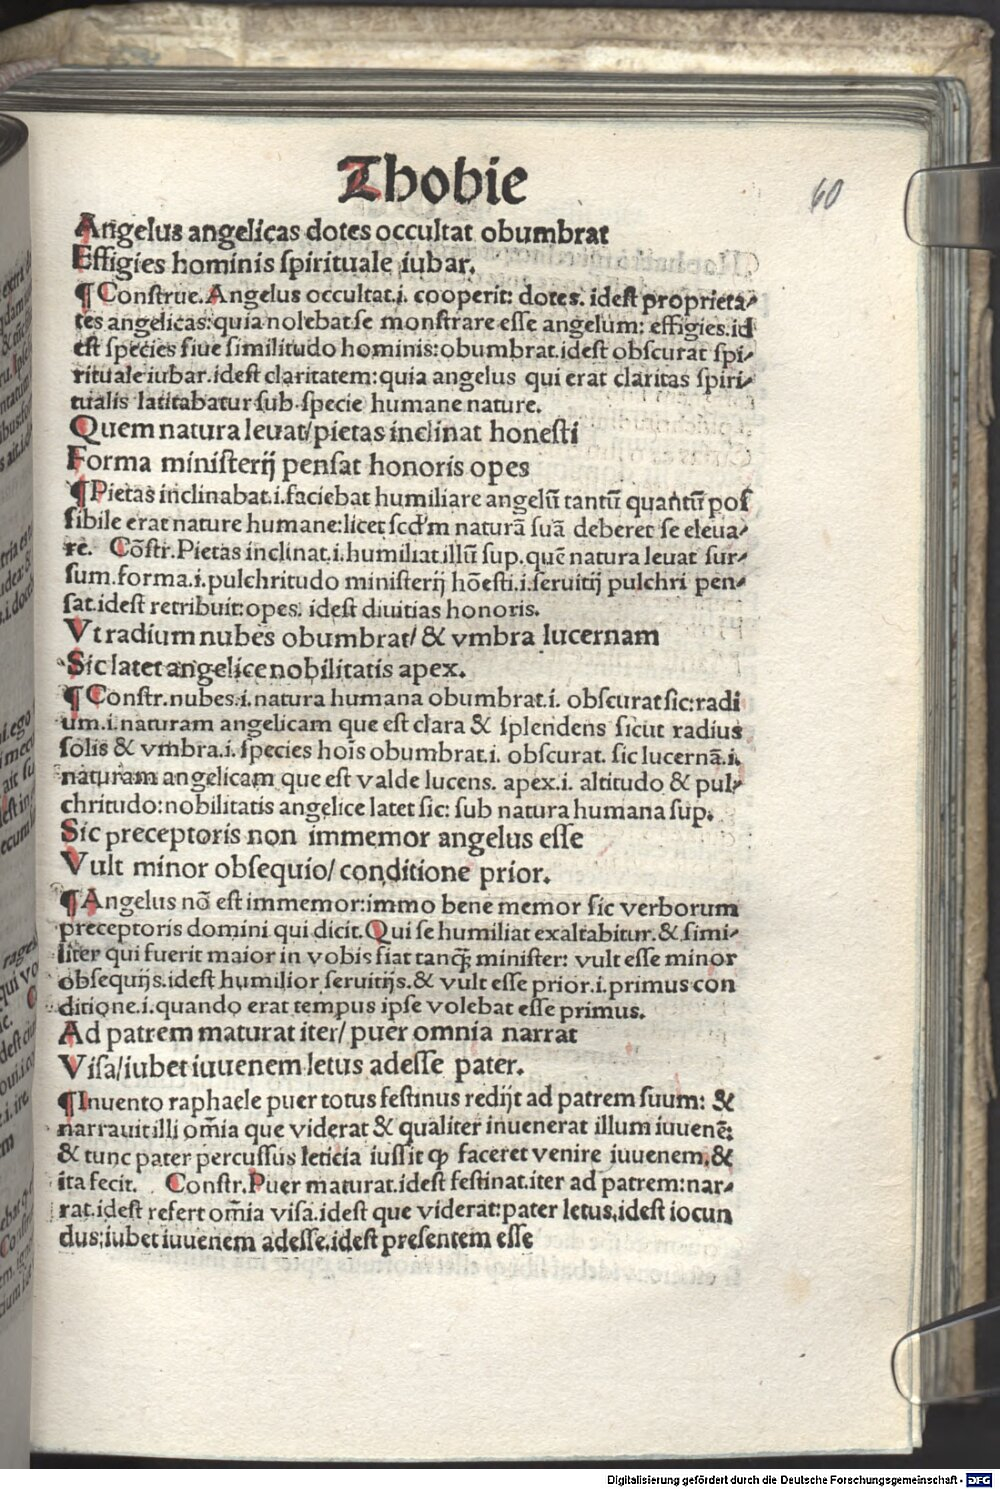 Thobie
60
Angelus angelicas dotes occultat obumbrat
Effigies hominis spirituale iubar.
¶ Construe. Angelus occultat.i. cooperit: dotes. idest proprieta⸗
tes angelicas:quia nolebat se monstrare esse angelum: effigies.id
est species siue similitudo hominis:obumbrat.idest obscurat spi⸗
rituale iubar.idest claritatem:quia angelus qui erat claritas spiri⸗
tualis latitabatur sub specie humane nature.
Quem natura leuat/pietas inclinat honesti
Forma ministerij pensat honoris opes
¶ Pietas inclinabat.i.faciebat humiliare angelū tantū quantū pos
sibile erat nature humane:licet scd'm naturā suā deberet se eleua⸗
re. Cōstr.Pietas inclinat.i.humiliat illū sup.quē natura leuat sur⸗
sum.forma.i.pulchritudo ministerij hōesti.i.seruitij pulchri pen⸗
sat.idest retribuit:opes. idest diuitias honoris.
Vt radium nubes obumbrat/ & vmbra lucernam
Sic latet angelice nobilitatis apex.
¶ Constr.nubes.i.natura humana obumbrat.i. obscurat sic:radi
um.i.naturam angelicam que est clara & splendens sicut radius
solis & vmbra.i.species hoīs obumbrat.i. obscurat. sic lucernā.i.
naturam angelicam que est valde lucens. apex.i. altitudo & pul⸗
chritudo:nobilitatis angelice latet sic: sub natura humana sup.
Sic preceptoris non immemor angelus esse
Vult minor obsequio/ conditione prior.
¶ Angelus nō est immemor:immo bene memor sic verborum
preceptoris domini qui dicit.Qui se humiliat exaltabitur.& simi⸗
liter qui fuerit maior in vobis fiat tanq̄ minister: vult esse minor
obsequijs.idest humilior seruitijs.& vult esse prior.i.primus con
ditione.i.quando erat tempus ipse volebat esse primus.
Ad patrem maturat iter/ puer omnia narrat
Visa/iubet iuuenem letus adesse pater.
¶ Inuento raphaele puer totus festinus redijt ad patrem suum: &
narrauit illi om̄ia que viderat & qualiter inuenerat illum iuuenē:
& tunc pater percussus leticia iussit ꝙ faceret venire iuuenem.&
ita fecit. Constr.Puer maturat.idest festinat.iter ad patrem:nar⸗
rat.idest refert om̄ia visa.idest que viderat:pater letus.idest iocun
dus:iubet iuuenem adesse.idest presentem esse
Digitalisierung gefördert durch die Deutsche Forschungsgemeinschaft - DFG